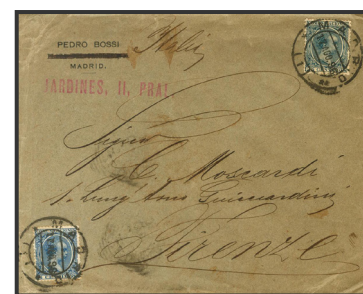 PEDRO BOSSI
Italia
MADRID.
JARDINES, 11, PRAL
Signor
C. Moscardi
Lung'Arno Guicciardini
Firenze